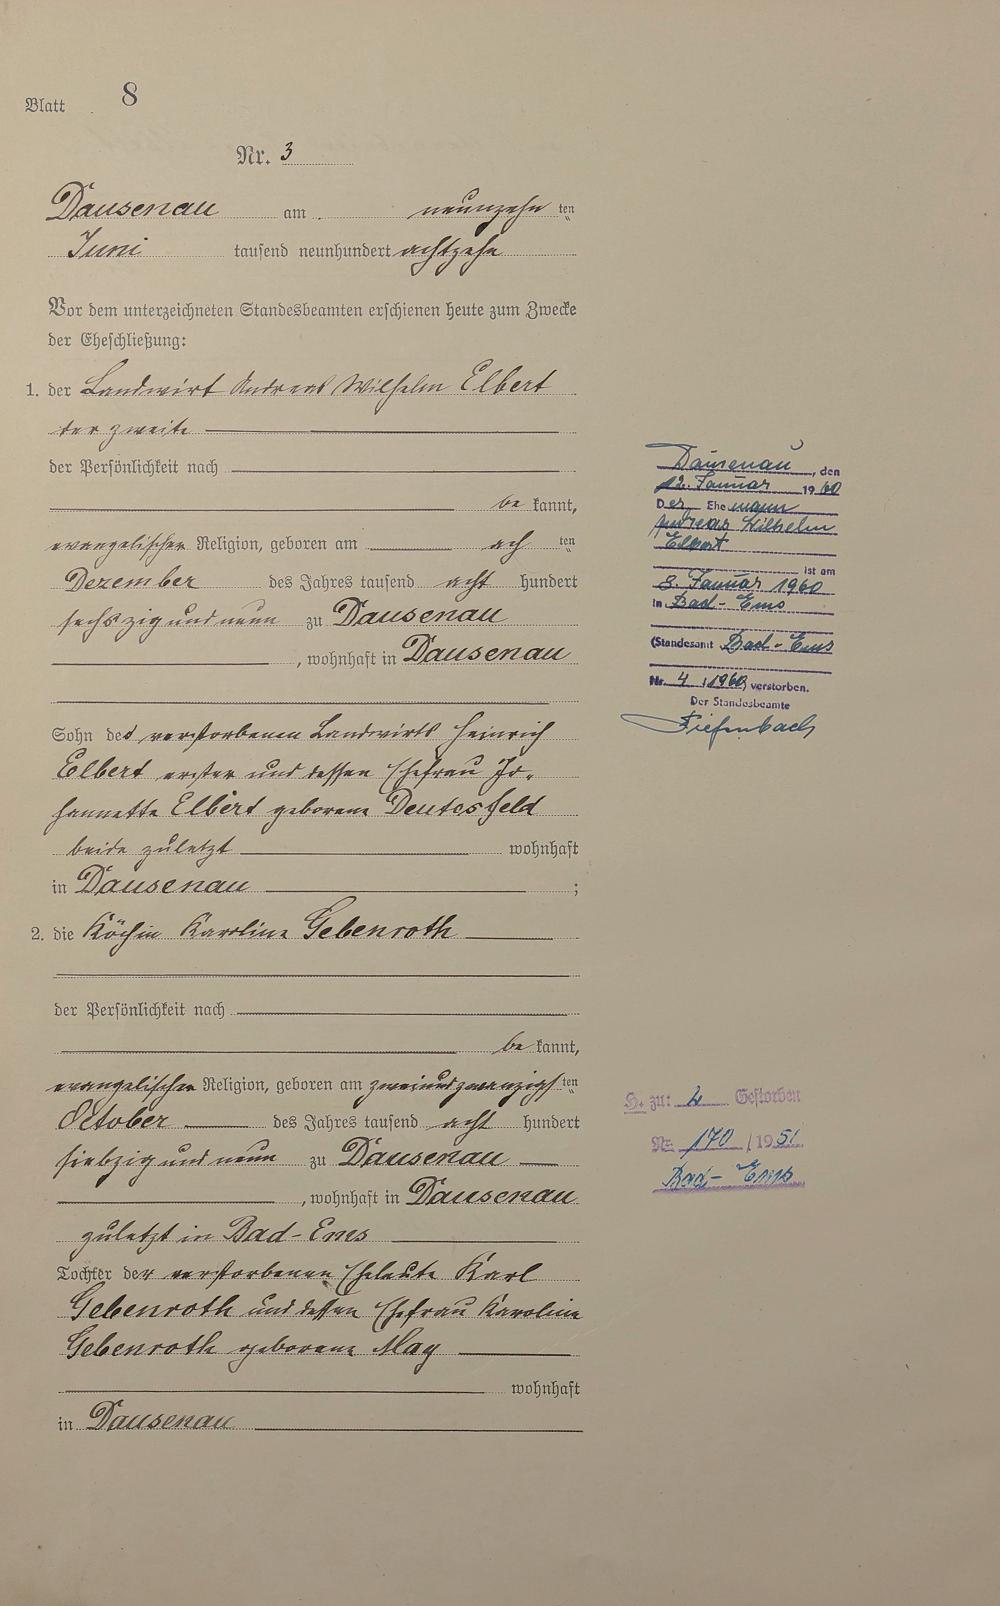 Blatt 8
Nr. 3
Dausenau am neunzehnten
Juni tausend neunhundert achtzehn
Vor dem unterzeichneten Standesbeamten erschienen heute zum Zwecke
der Eheschließung:
1. der Landwirt Andreas Wilhelm Elbert
der zweite
der Persönlichkeit nach
bekannt,
evangelischer Religion, geboren am achten
Dezember des Jahres tausend acht hundert
sechszig und neun zu Dausenau
, wohnhaft in Dausenau
Sohn des verstorbenen Landwirts Heinrich
Elbert erster und dessen Ehefrau Jo-
hannette Elbert geborene Deutesfeld
beide zuletzt wohnhaft
in Dausenau ;
2. die Köchin Karoline Gebenroth
der Persönlichkeit nach
bekannt,
evangelischer Religion, geboren am zweiundzwanzigsten
October des Jahres tausend acht hundert
siebzig und neun zu Dausenau
, wohnhaft in Dausenau
zuletzt in Bad-Ems
Tochter der verstorbenen Eheleute Karl
Gebenroth und dessen Ehefrau Karoline
Gebenroth geborene May
wohnhaft
in Dausenau
Dausenau, den
12. Januar 1960
Der Ehemann
Andreas Wilhelm
Elbert
ist am
8. Januar 1960
in Bad-Ems
(Standesamt Bad-Ems
Nr. 4/1960) verstorben.
Der Standesbeamte
Tiefenbach
H. zu: 2 Gestorben
Nr. 170/1951
Bad-Ems